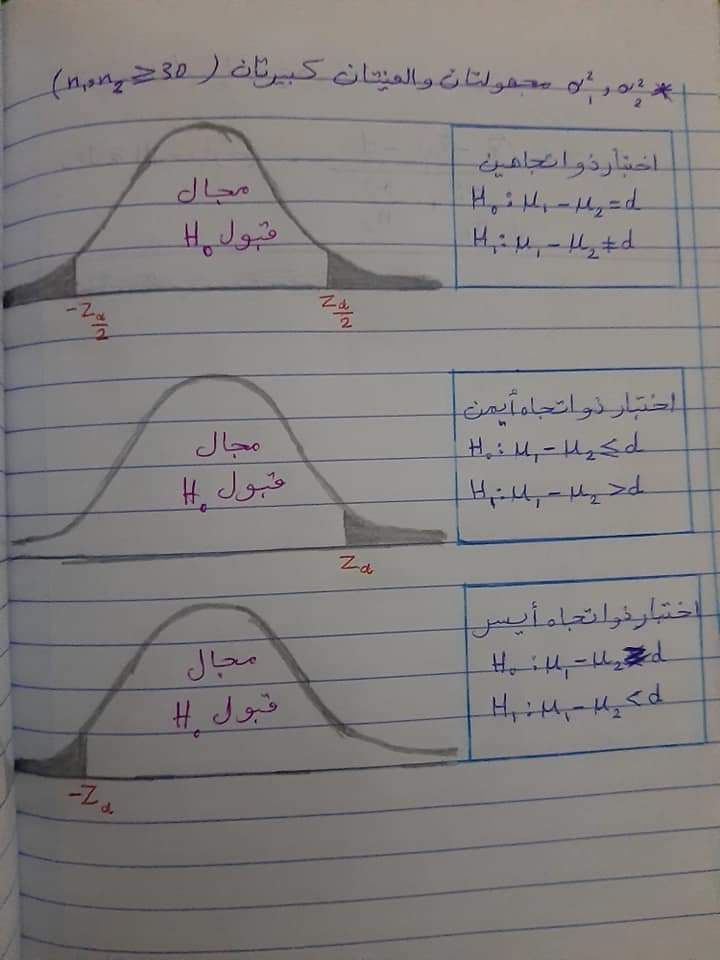 * σ₁² و σ₂² مجهولتان والعينتان كبيرتان (n₁, n₂ ≥ 30)
اختبار ذو اتجاهين
H₀ : μ₁ - μ₂ = d
H₁ : μ₁ - μ₂ ≠ d
مجال
قبول H₀
-Z_α/2
Z_α/2
اختبار ذو اتجاه أيمن
H₀ : μ₁ - μ₂ ≤ d
H₁ : μ₁ - μ₂ > d
مجال
قبول H₀
Z_α
اختبار ذو اتجاه أيسر
H₀ : μ₁ - μ₂ ≥ d
H₁ : μ₁ - μ₂ < d
مجال
قبول H₀
-Z_α